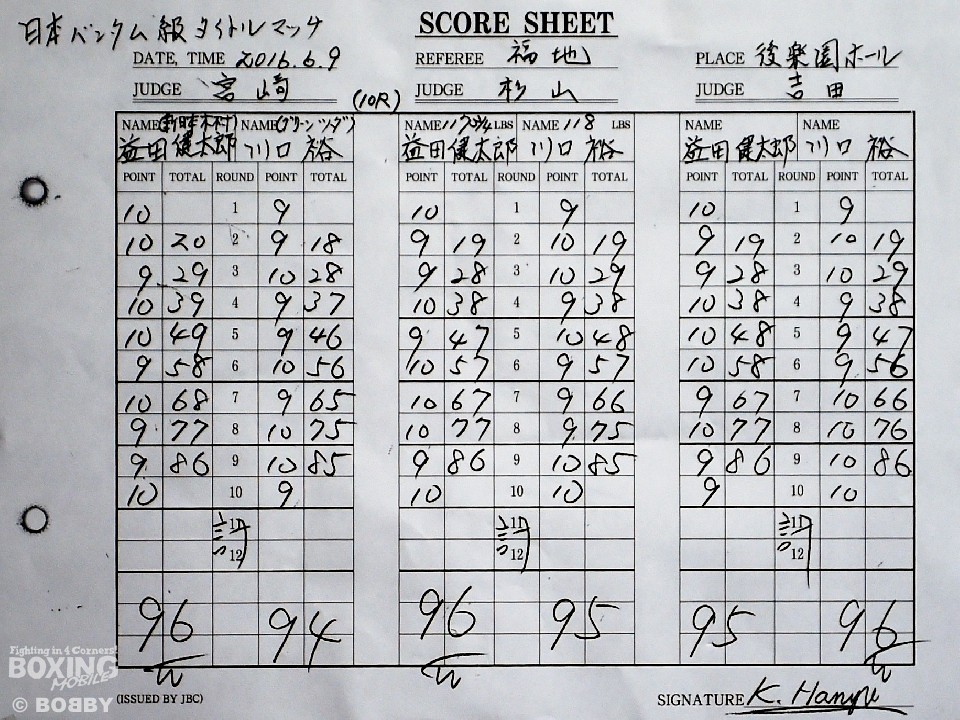 日本バンタム級タイトルマッチ
SCORE SHEET
DATE, TIME 2016.6.9 REFEREE 福地 PLACE 後楽園ホール
JUDGE 宮崎 (10R) JUDGE 杉山 JUDGE 吉田
NAME (新日本木村) NAME (グリーンツダ) NAME 117 3/4 LBS NAME 118 LBS NAME NAME
益田健太郎 川口裕 益田健太郎 川口裕 益田健太郎 川口裕
POINT TOTAL ROUND POINT TOTAL POINT TOTAL ROUND POINT TOTAL POINT TOTAL ROUND POINT TOTAL
10 1 9 10 1 9 10 1 9
10 20 2 9 18 9 19 2 10 19 9 19 2 10 19
9 29 3 10 28 9 28 3 10 29 9 28 3 10 29
10 39 4 9 37 10 38 4 9 38 10 38 4 9 38
10 49 5 9 46 9 47 5 10 48 10 48 5 9 47
9 58 6 10 56 10 57 6 9 57 10 58 6 9 56
10 68 7 9 65 10 67 7 9 66 9 67 7 10 66
9 77 8 10 75 10 77 8 9 75 10 77 8 10 76
9 86 9 10 85 9 86 9 10 85 9 86 9 10 86
10 10 9 10 10 10 9 10 10
計 11 計 11 計 11
12 12 12
96 94 96 95 95 96
W W W
Fighting in 4 Corners!
BOXING
MOBILE
© BOBBY
(ISSUED BY JBC) SIGNATURE K. Hanyu